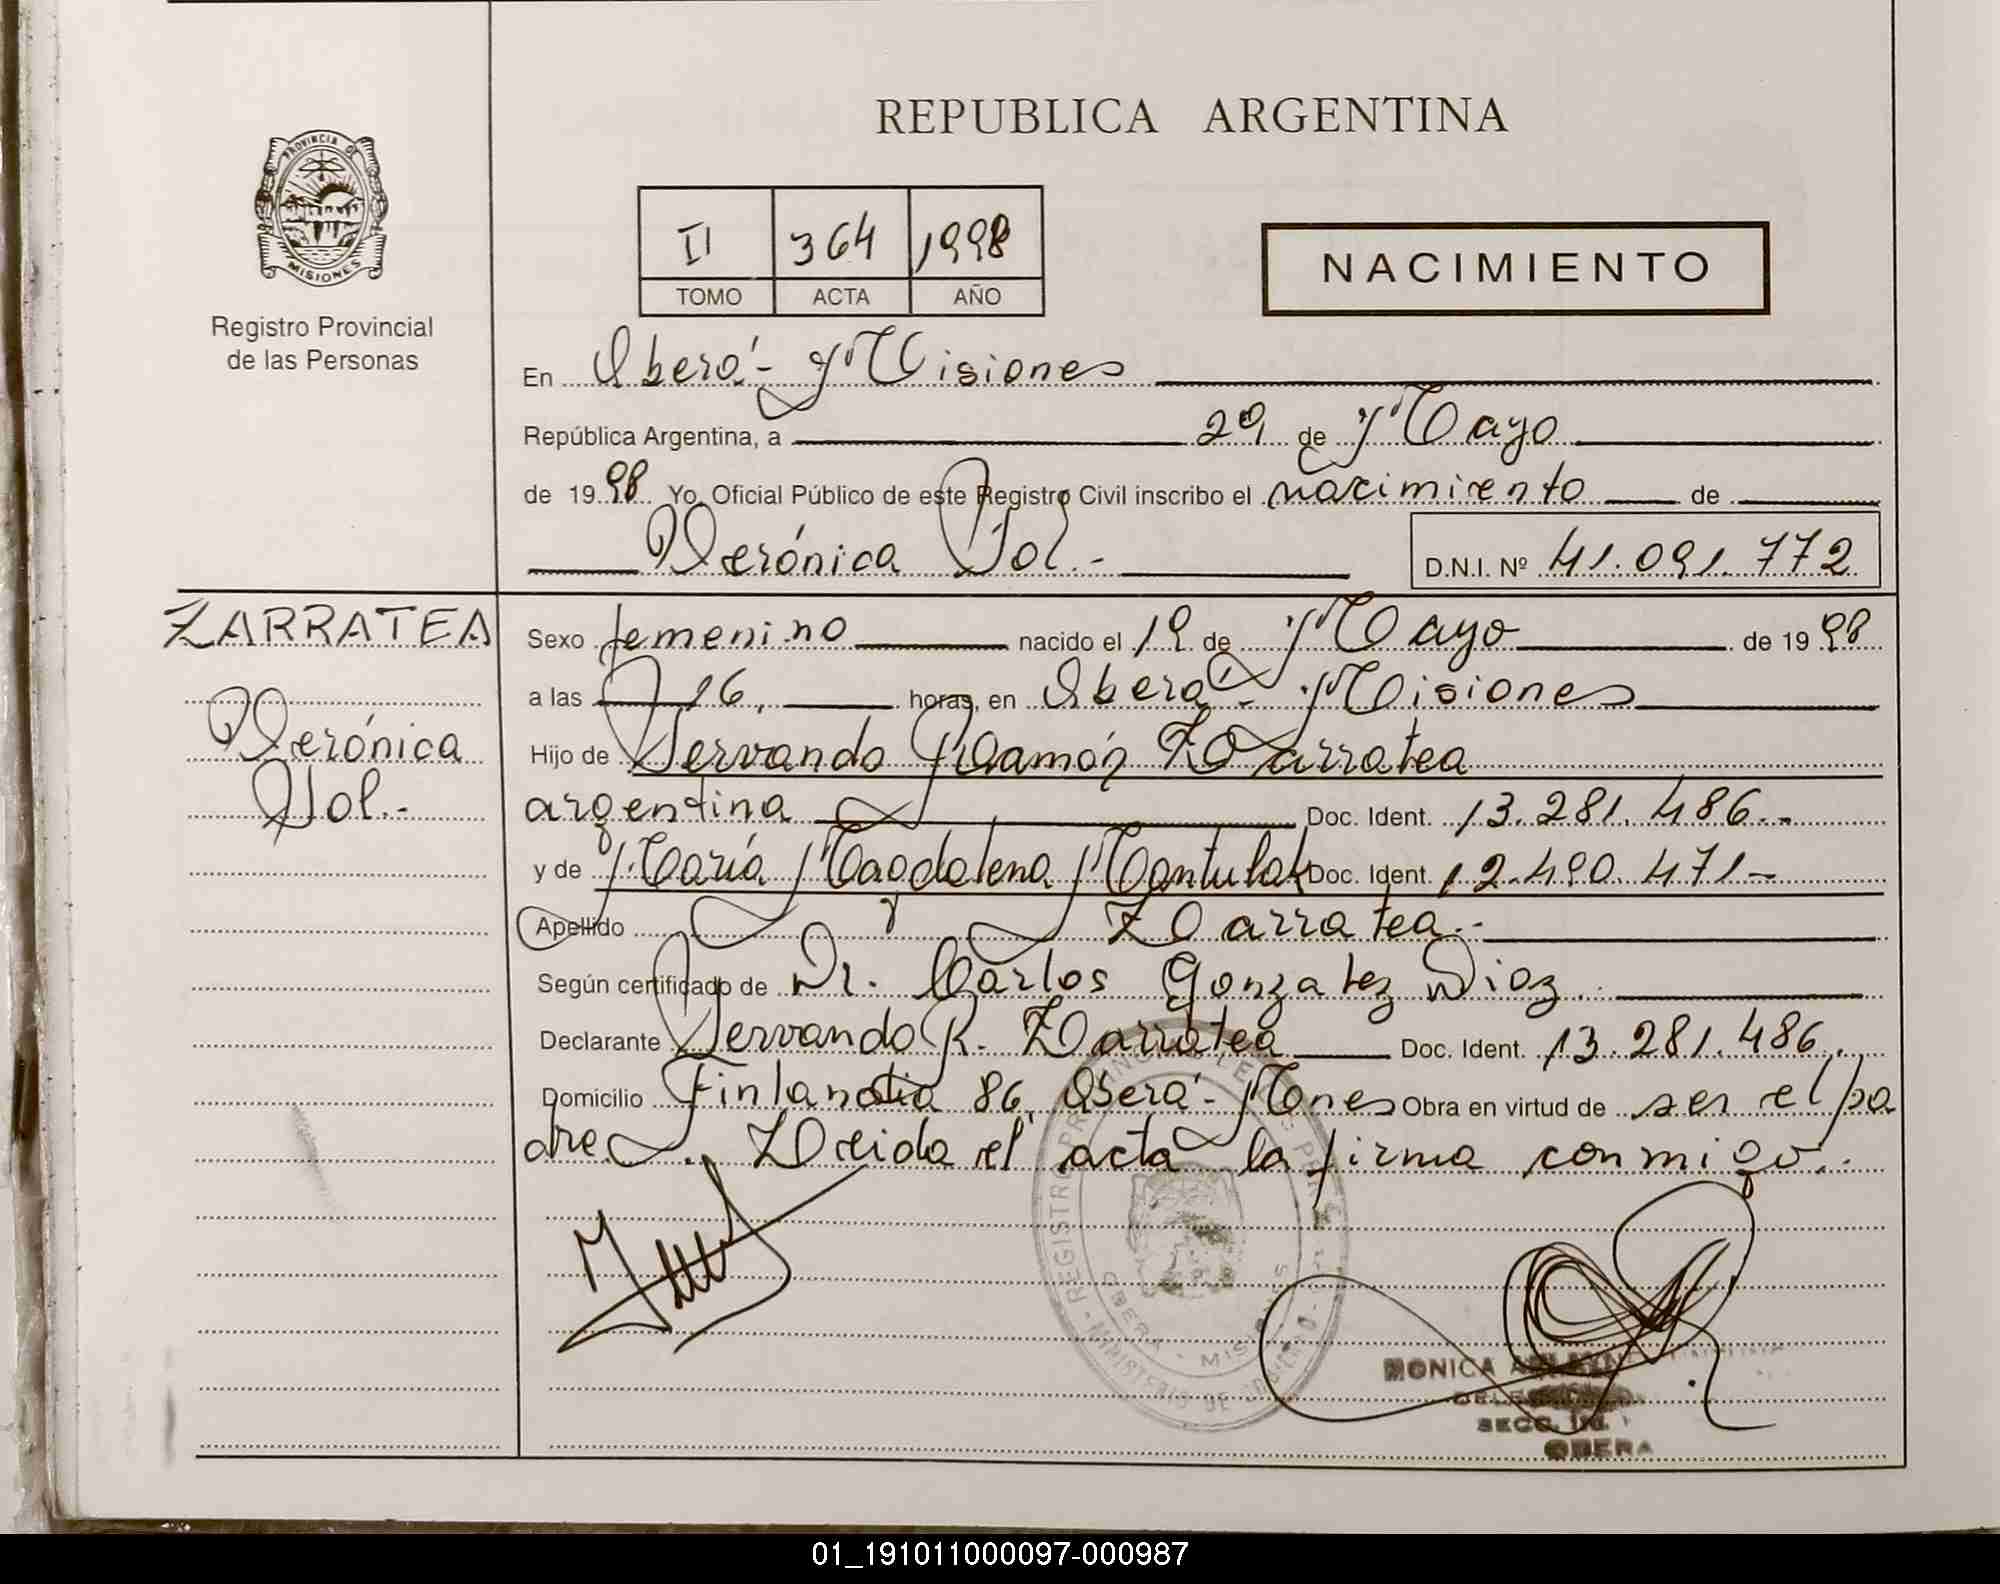 REPUBLICA ARGENTINA
PROVINCIA DE
MISIONES
Registro Provincial
de las Personas
II 364 1998
TOMO ACTA AÑO
NACIMIENTO
En Oberá - Misiones
República Argentina, a 29 de Mayo
de 1998 Yo, Oficial Público de este Registro Civil inscribo el nacimiento de
Verónica Sol.-
D.N.I. Nº 41.091.772
ZARRATEA
Verónica
Sol.-
Sexo femenino nacido el 19 de Mayo de 1998
a las 16, horas, en Oberá - Misiones
Hijo de Servando Ramón Zarratea
argentina Doc. Ident. 13.281.486.-
y de María Magdalena Doc. Ident. 12.490.471-
Apellido Zarratea.-
Según certificado de Dr. Carlos Gonzalez Dioz.
Declarante Servando R. Zarratea Doc. Ident. 13.281.486.
Domicilio Finlandia 86, Oberá - Mnes Obra en virtud de ser el pa
dre. Leida el acta la firma conmigo.-
REGISTRO PROVINCIAL DE LAS PERS
MINISTERIO DE GOBIERNO
OBERA - MISIONES
MONICA
SECC.
OBERA
01_191011000097-000987